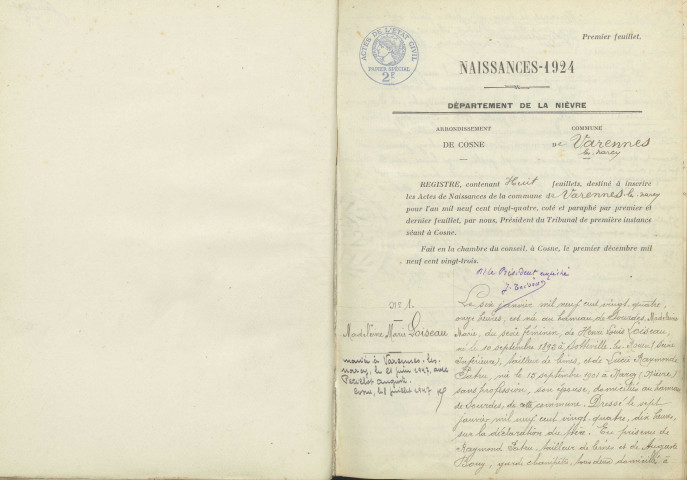 Premier feuillet.
ACTES DE L'ÉTAT CIVIL
PAPIER SPÉCIAL
2F
NAISSANCES-1924
DÉPARTEMENT DE LA NIÈVRE
ARRONDISSEMENT
DE COSNE
COMMUNE
DE Varennes
les-narcy
REGISTRE, contenant Huit feuillets, destiné à inscrire
les Actes de Naissances de la commune de Varennes-les-narcy
pour l'an mil neuf cent vingt-quatre, coté et paraphé par premier et
dernier feuillet, par nous, Président du Tribunal de première instance
séant à Cosne.
Fait en la chambre du conseil, à Cosne, le premier décembre mil
neuf cent vingt-trois.
Président
N° 1.
Madeleine Marie Loiseau
mariée à Varennes-les-
narcy, le 21 juin 1947, avec
juillet 1947
Le six janvier mil neuf cent vingt quatre,
onze heures, est née au hameau de Sourdes, Madeleine
Marie, du sexe féminin, de Henri Louis Loiseau,
né le 10 septembre 1893 à Sotteville les Rouen (Seine
Inférieure), tailleur de limes, et de Lucie Raymonde
née le 13 septembre 1901 à Narcy (Nièvre)
sans profession, son épouse, domiciliés au hameau
de Sourdes, de cette commune. Dressé le sept
janvier mil neuf cent vingt quatre, dix heures,
sur la déclaration du père. En présence de
Raymond tailleur de limes et de Auguste
garde champêtre, tous deux domiciliés à